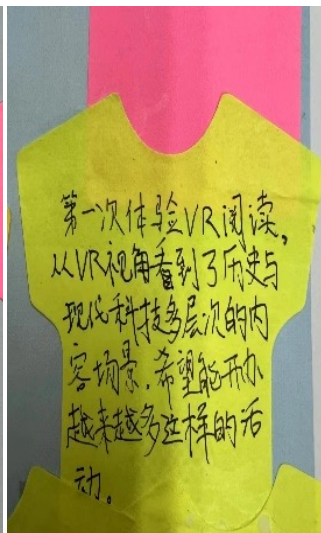 第一次体验VR阅读，
从VR视角看到了历史与
现代科技多层次的内
容场景，希望能开办
越来越多这样的活
动。